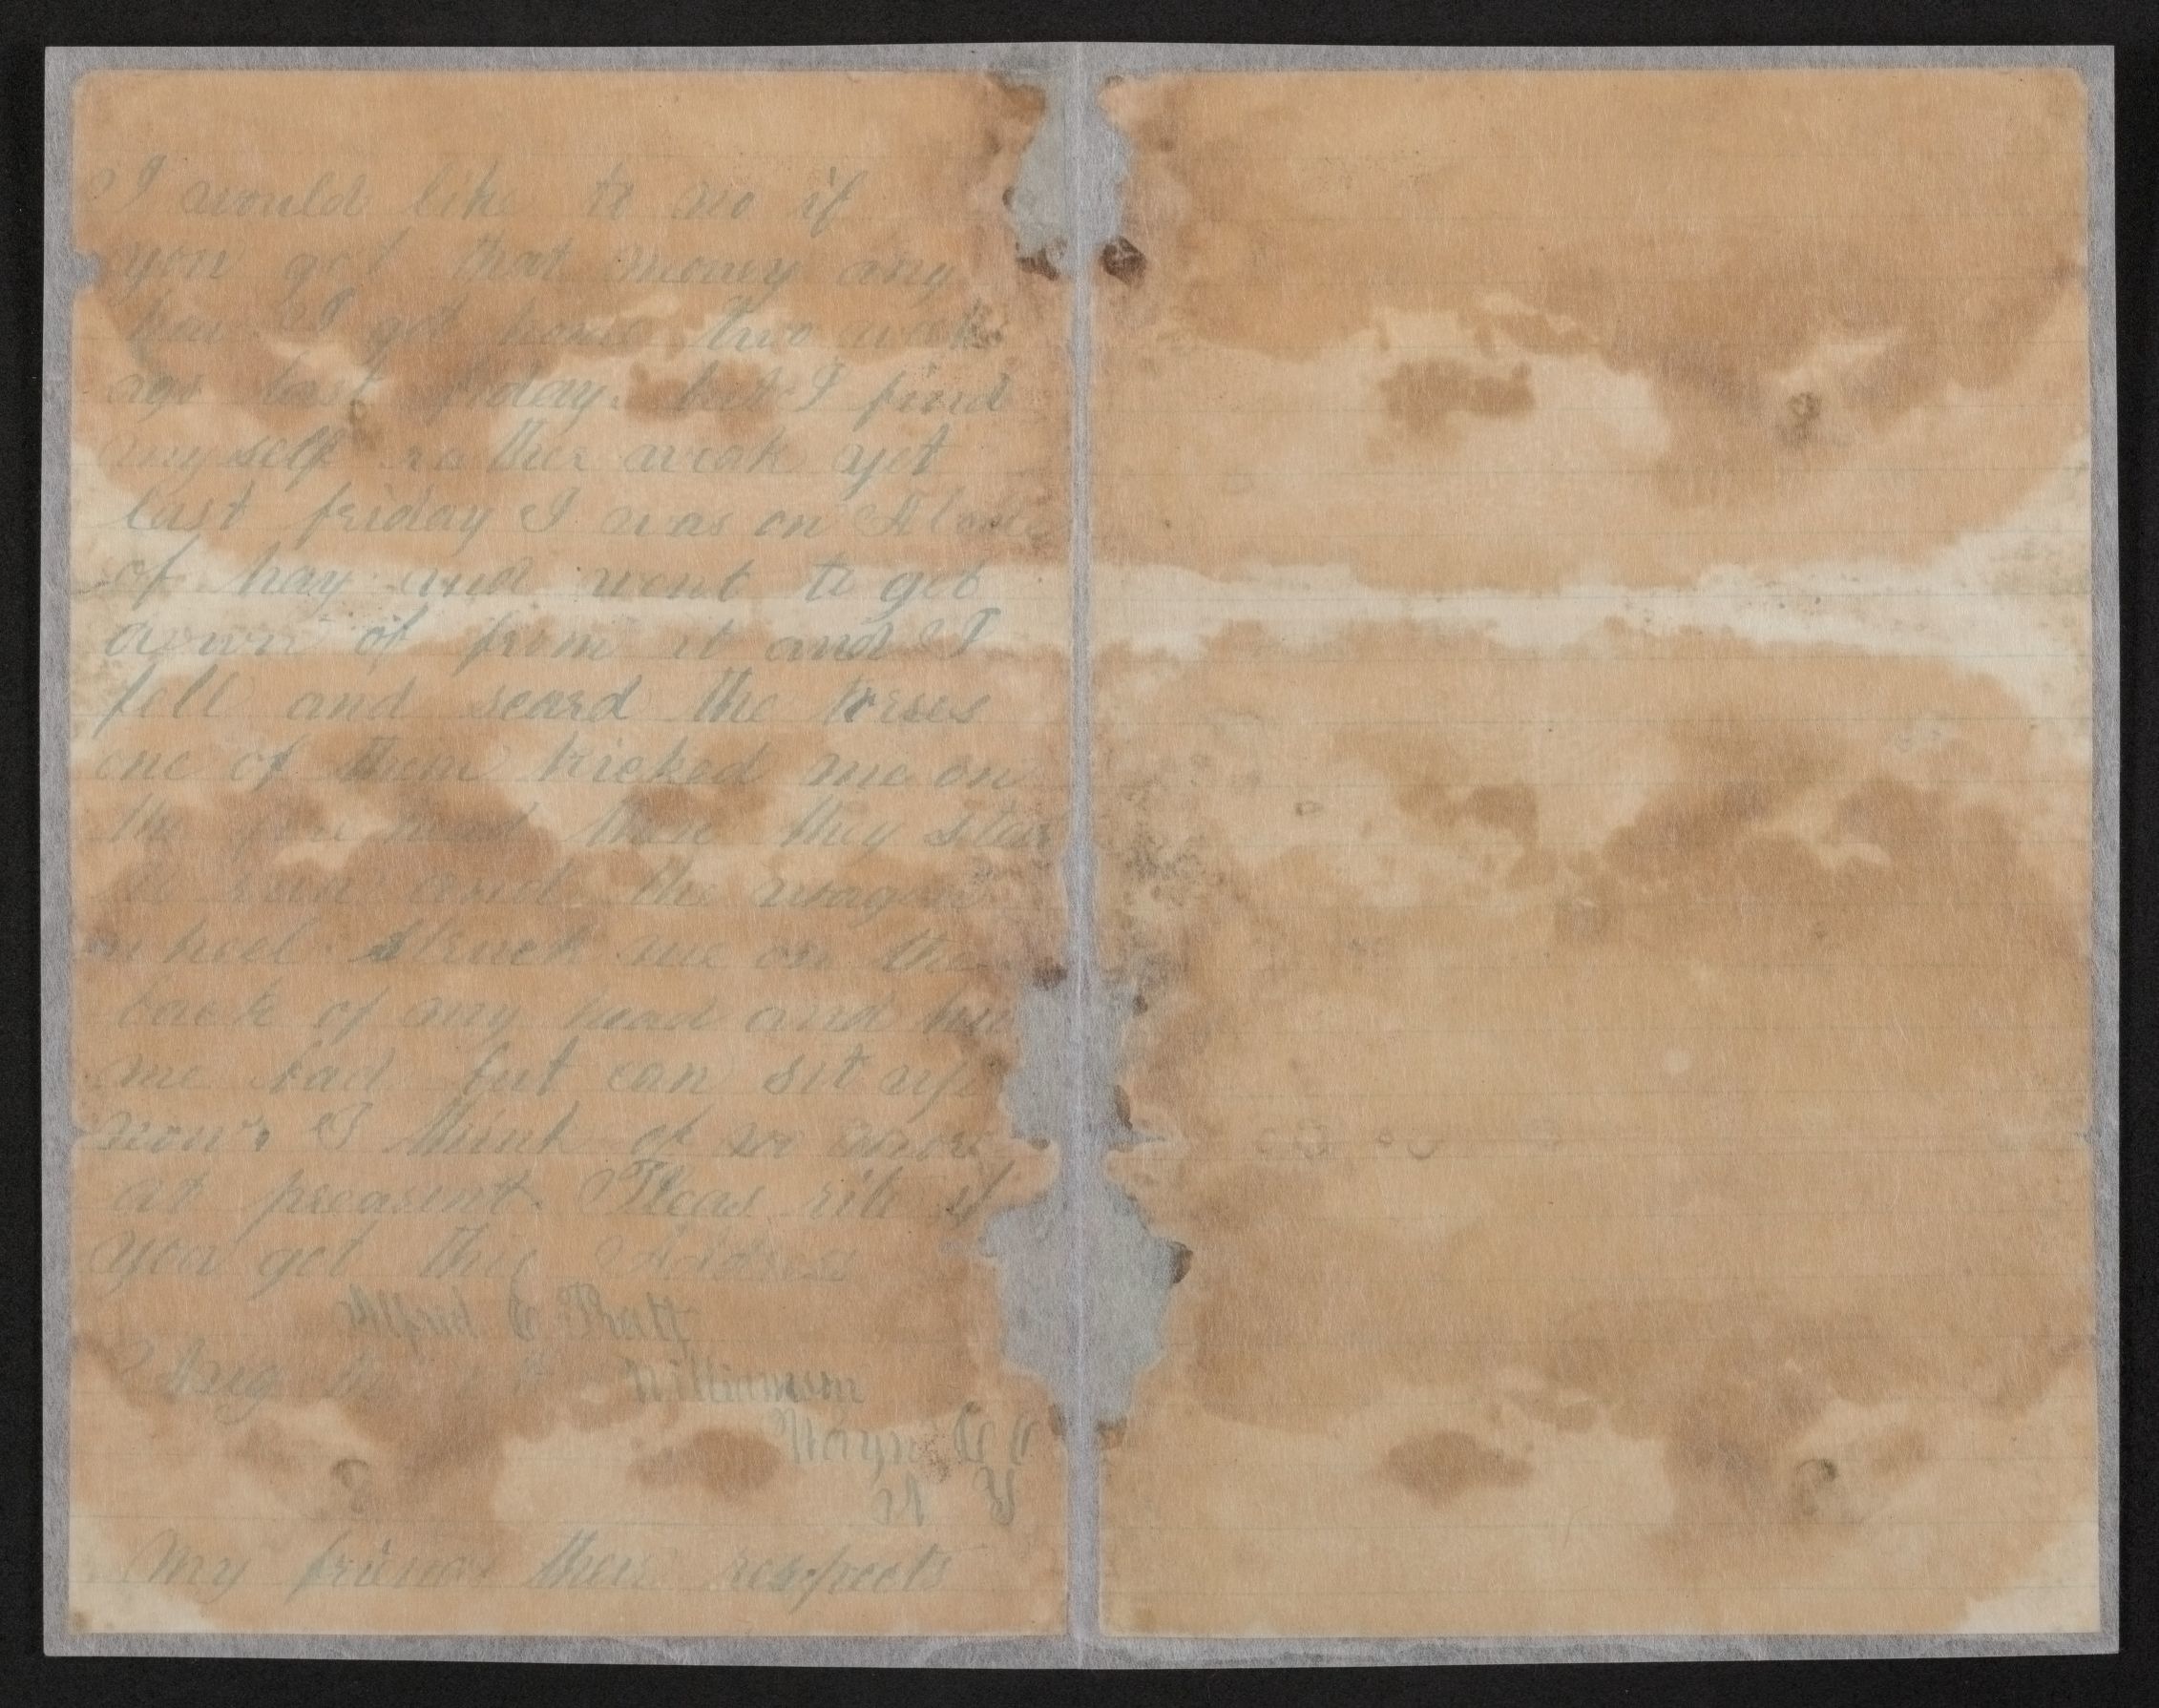 I would like to no if
you got that money any
how I got home two week
ago last friday. but I find
my self rather weak yet
last friday I was on A load
of hay and went to get
down of from it and I
fell and scard the horses
one of them kicked me on
the head then they
to run and the wagon
wheel struck me on the
back of my head and
me bad but can sit up
now. I think of no more
at preasent. Pleas rite if
you get this Address
Alfred E Pratt
Aug the Williamson
Wayne Co
N Y
My friends there respects